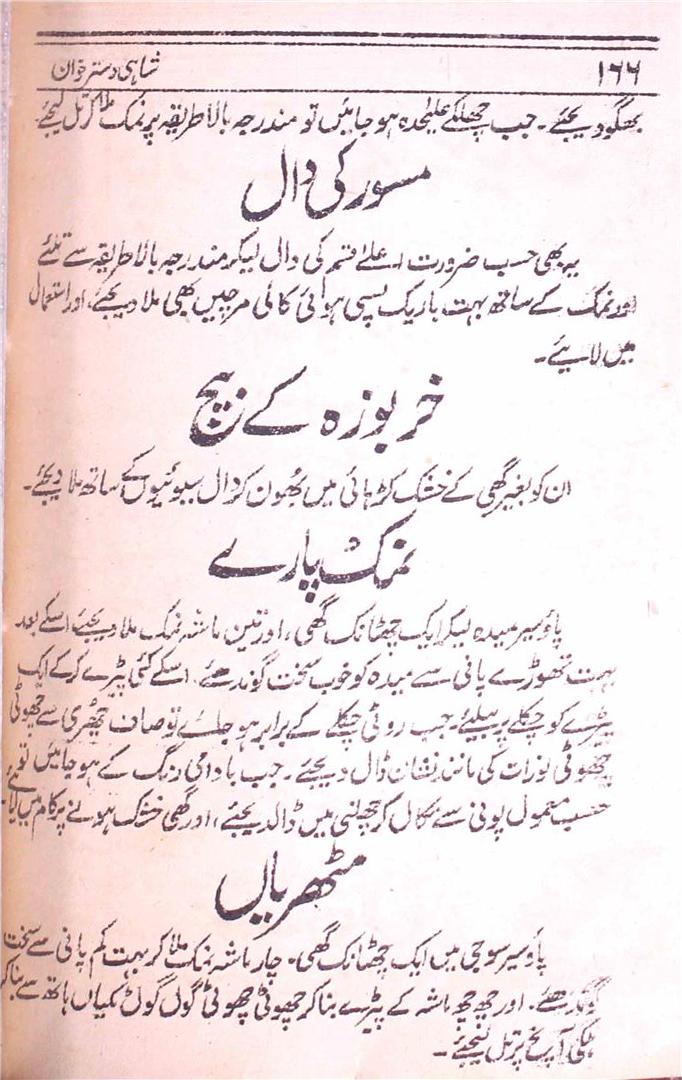 ۱۶۶
شاہی دسترخوان
بھگو دیجئے۔ جب چھلکے علیٰحدہ ہو جائیں تو مندرجہ بالا طریقہ پر نمک ملا کر تل لیجئے۔
مسور کی دال
یہ بھی حسب ضرورت اعلےٰ قسم کی دال لیکر مندرجہ بالا طریقہ سے تلئے
اور نمک کے ساتھ بہت باریک پسی ہوائی کالی مرچیں بھی ملا دیجئے، اور استعمال
میں لایئے۔
خربوزہ کے بیج
ان کو بغیر گھی کے خشک کڑہائی میں بھون کر دال سیوئیوں کے ساتھ ملا دیجئے۔
نمک پارے
پاؤ سیر میدہ لیکر ایک چھٹانک گھی، اور تین ماشہ نمک ملا دیجئے اسکے بعد
بہت تھوڑے پانی سے میدہ کو خوب سخت گوندھئے، اسکے کئی پیڑے کر کے ایک
پیڑے کو چکلے پر بیلئے، جب روٹی چکلے کے برابر ہو جائے تو صاف چھری سے چھوٹی
چھوٹی لوزات کی مانند نشان ڈال دیجئے۔ جب بادامی رنگ کے ہو جائیں تو
حسب معمول پونی سے نکال کر چھلنی میں ڈالدیجئے، اور گھی خشک ہونے پر کام میں لائیے
مٹھریاں
پاؤ سیر سوجی میں ایک چھٹانک گھی۔ چار ماشہ نمک ملا کر بہت کم پانی سے سخت
گوندھئے۔ اور چھ چھ ماشہ کے پیڑے بنا کر چھوٹی چھوٹی گول گول ٹکیاں ہاتھ سے بنا کر
ہلکی آنچ پر تل لیجئے۔